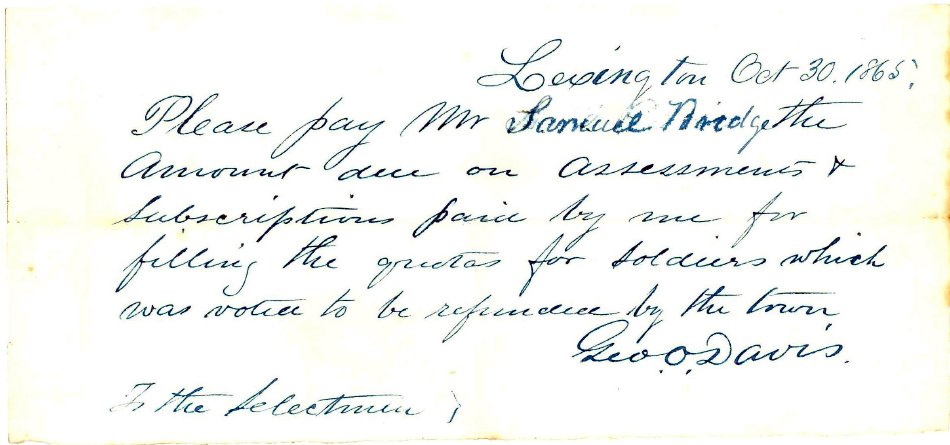 Lexington Oct 30. 1865;
Please pay Mr Samuel Bridge the
Amount due on Assessments &
Subscriptions paid by me for
filling the quotas for soldiers which
was voted to be refunded by the town
Geo. O. Davis.
To the Selectmen ;